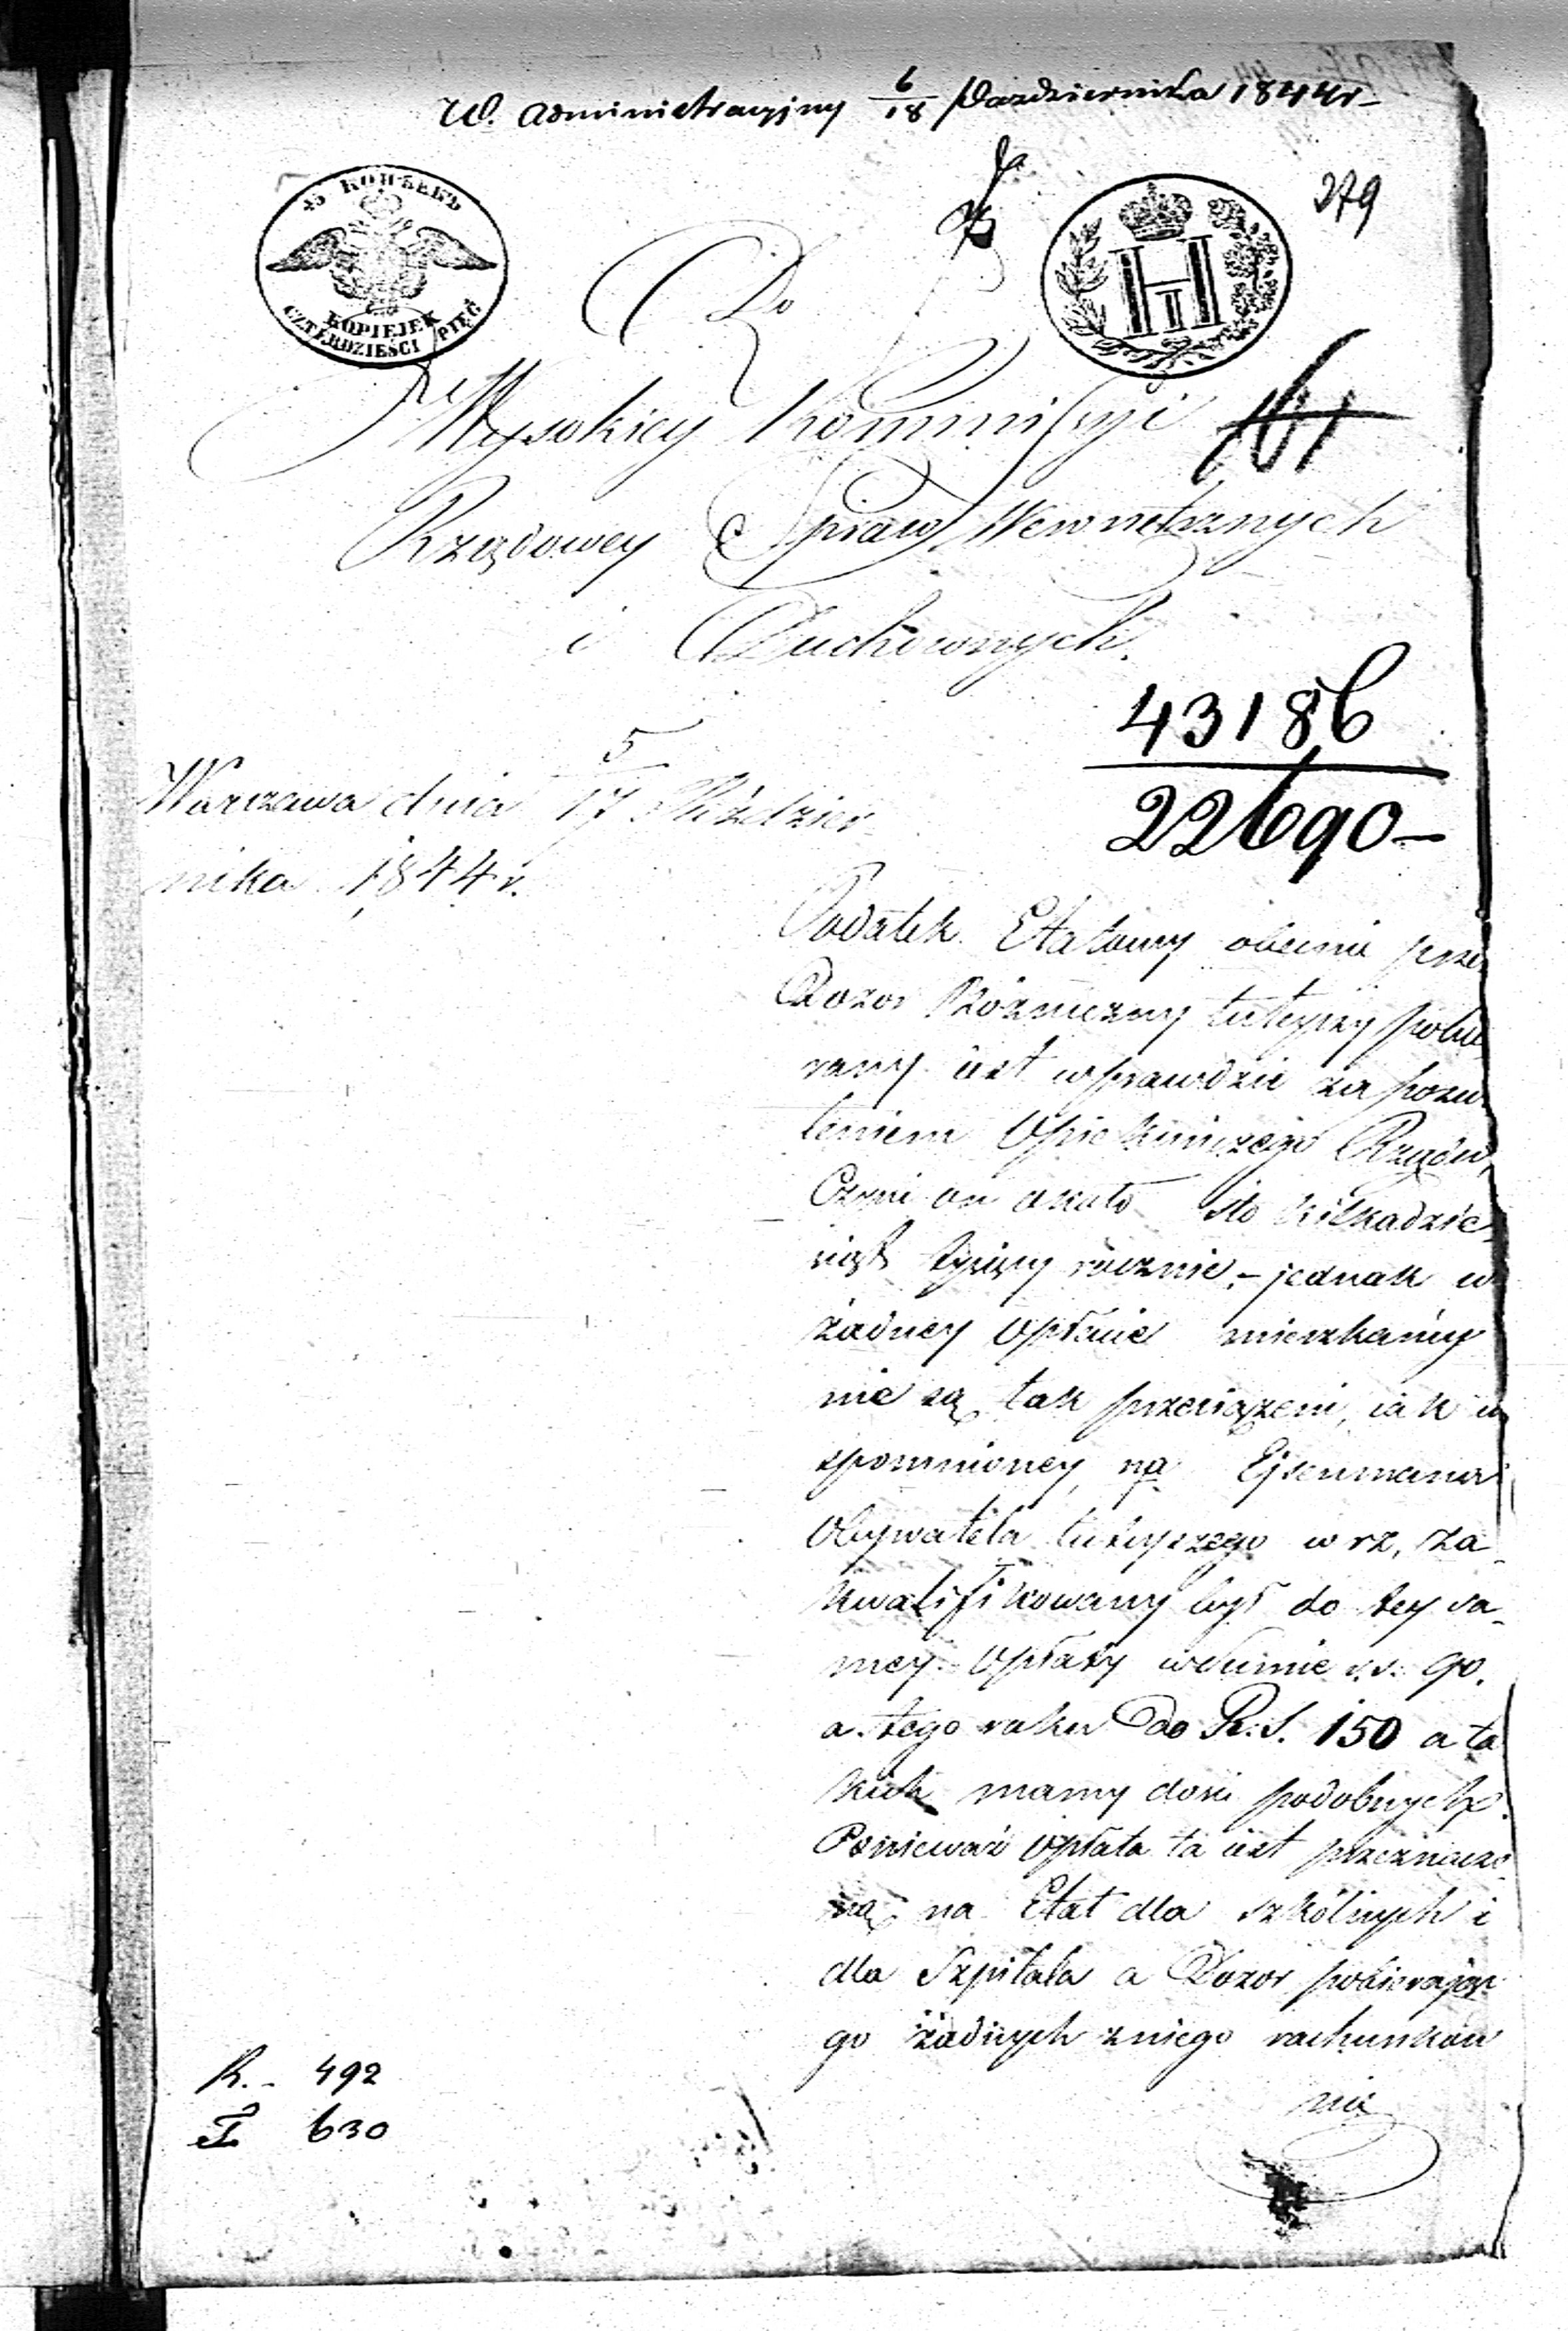 W. Administracyjny 6/18 Października 1844 r.
45 КОПѢЕКЪ
KOPIEJEK
CZTERDZIEŚCI PIĘĆ
279
Do
Wysokiey Kommissyi
Rządowey Spraw Wewnetrznych
i Duchownych.
43186
22690
Warszawa dnia 5/17 Paździer
nika 1844 r.
Podatek Etatowy obecnie prze
Dozor Bóżniczny tuteyszy pobie
rany iest wprawdzie za pozwo
leniem Opiekuńczego Rządu,
Czyni on około sto kilkadzie
siąt tysięcy rocznie, – jednak w
żadney opłacie mieszkańcy
nie są tak przeciążeni, iak w
spomnioney, np. Ejsenmana
Obywatela tuteyszego w rz, za
kwalifikowany był do tey sa
mey Opłaty w summie r.s. 90.
a tego roku do R.S. 150 a ta
kich mamy dosić podobnych.
Ponieważ Opłata ta iest przeznaczo
ną na Etat dla szkólnych i
dla Szpitala a Dozor pobierając
go żadnych zniego rachunków
nie
R. - 492
T 630